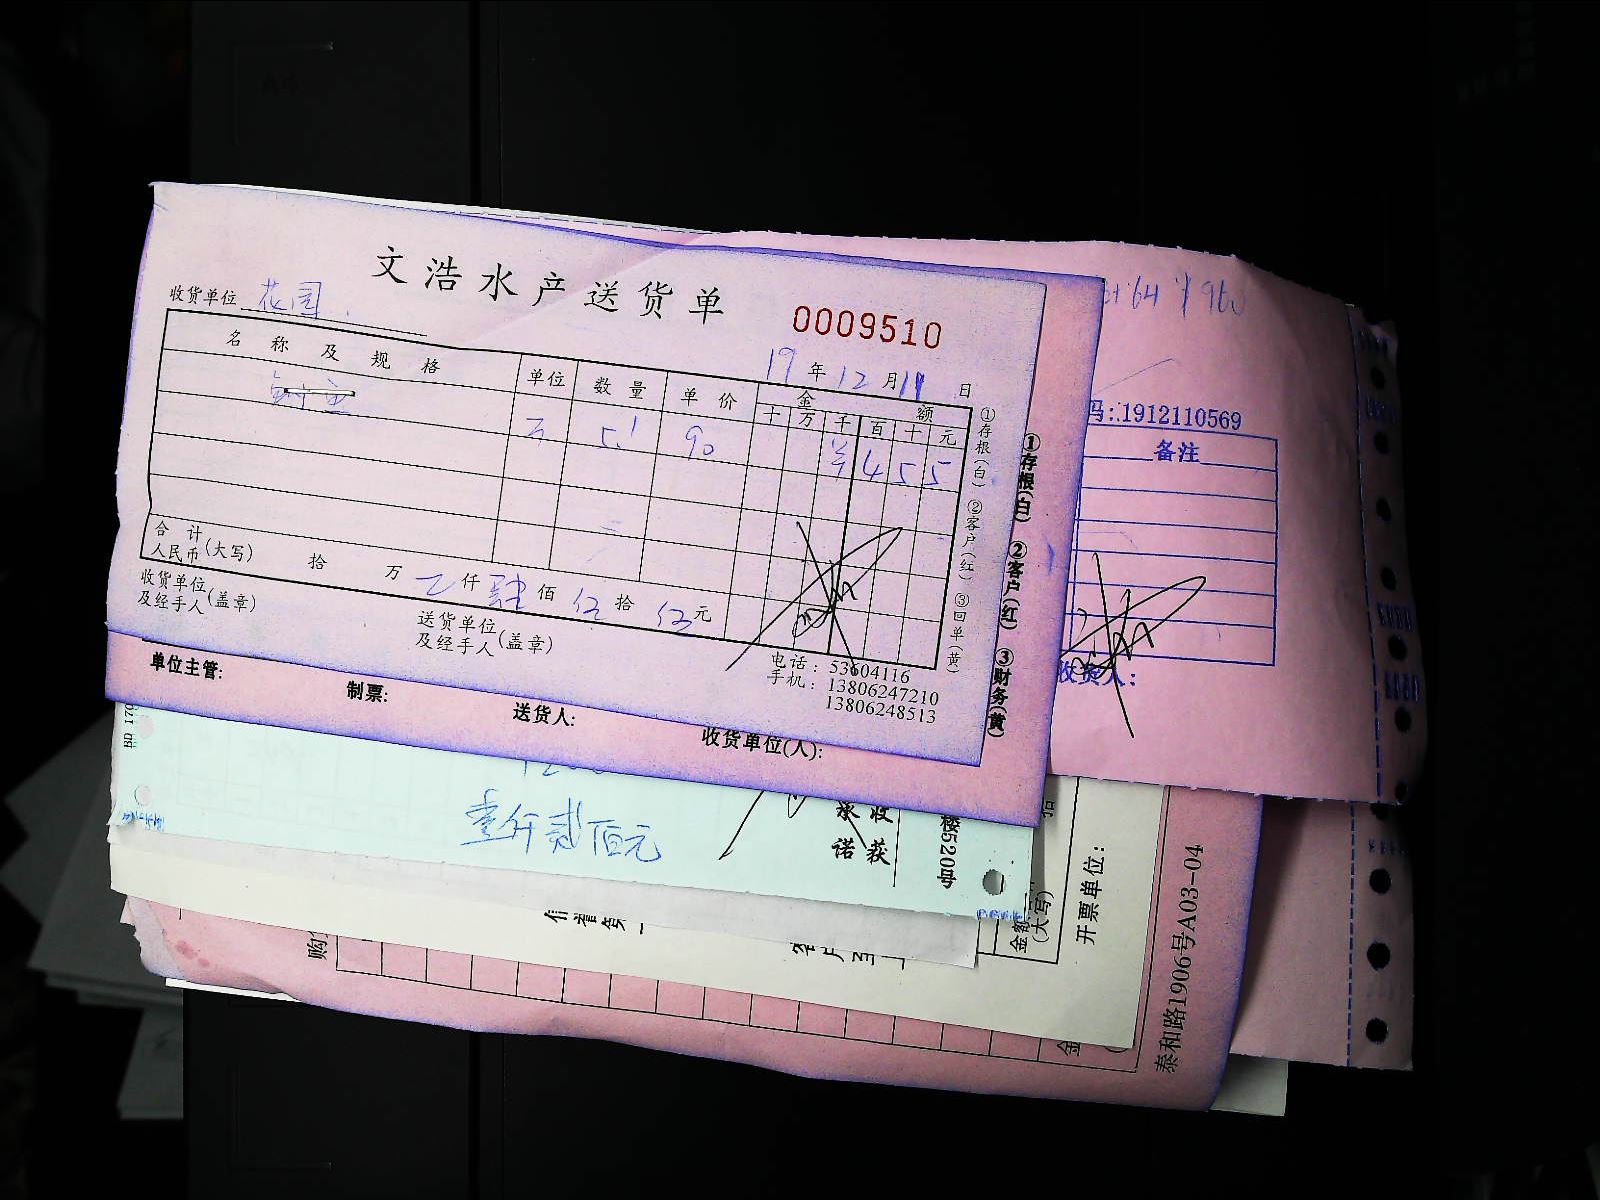 文浩水产送货单
收货单位 花园
0009510
19年12月11日
名称及规格 单位 数量 单价 金额
十 万 千 百 十 元
5.1 90 ¥ 4 5 5
合计
人民币(大写) 拾 万 仟 肆 佰 伍 拾 伍 元
收货单位
及经手人(盖章)
送货单位
及经手人(盖章)
电话:53604116
手机:13806247210
13806248513
①存根(白) ②客户(红) ③回单(黄)
①存根(白) ②客户(红) ③财务(黄)
单位主管: 制票: 送货人: 收货单位(人):
64 ¥960
码:1912110569
备注
收货人:
BD 170
壹仟贰佰元
承诺
收获
楼520号
金额
(大写)
拾
开票单位:
购
金
泰和路1906号A03-04